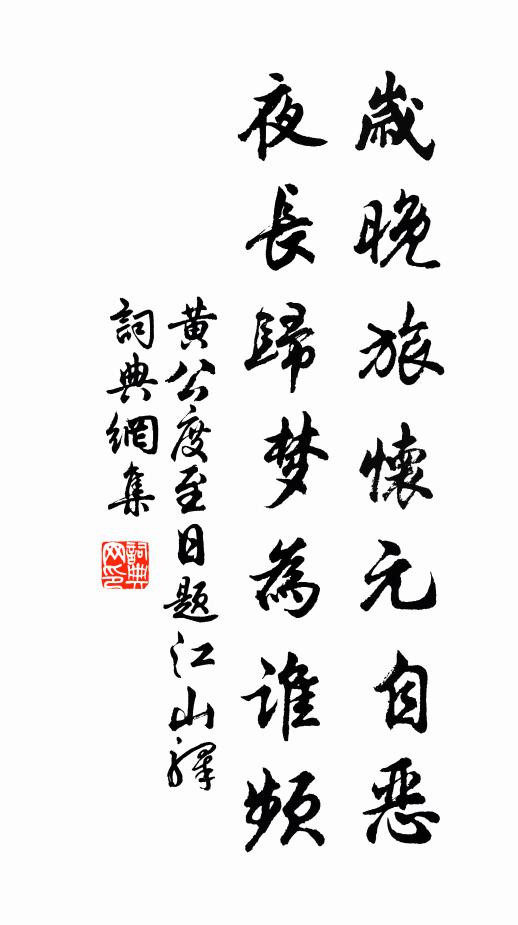 歲晚旅懷元自惡
夜長歸梦為誰頻
黃公度至日題江山驛
詞典網集
詞典网印